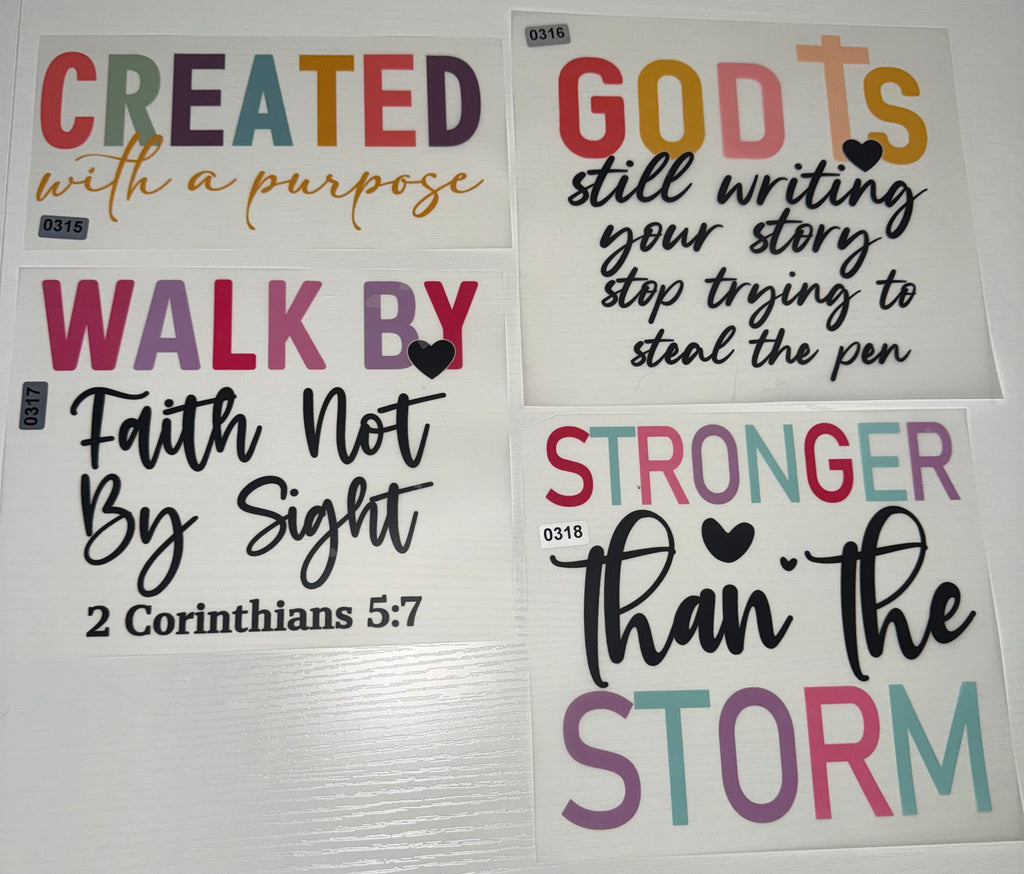 CREATED
with a purpose
0315
0316
GOD IS
still writing
your story
stop trying to
steal the pen
WALK BY
0317
Faith Not
By Sight
2 Corinthians 5:7
STRONGER
0318
than the
STORM